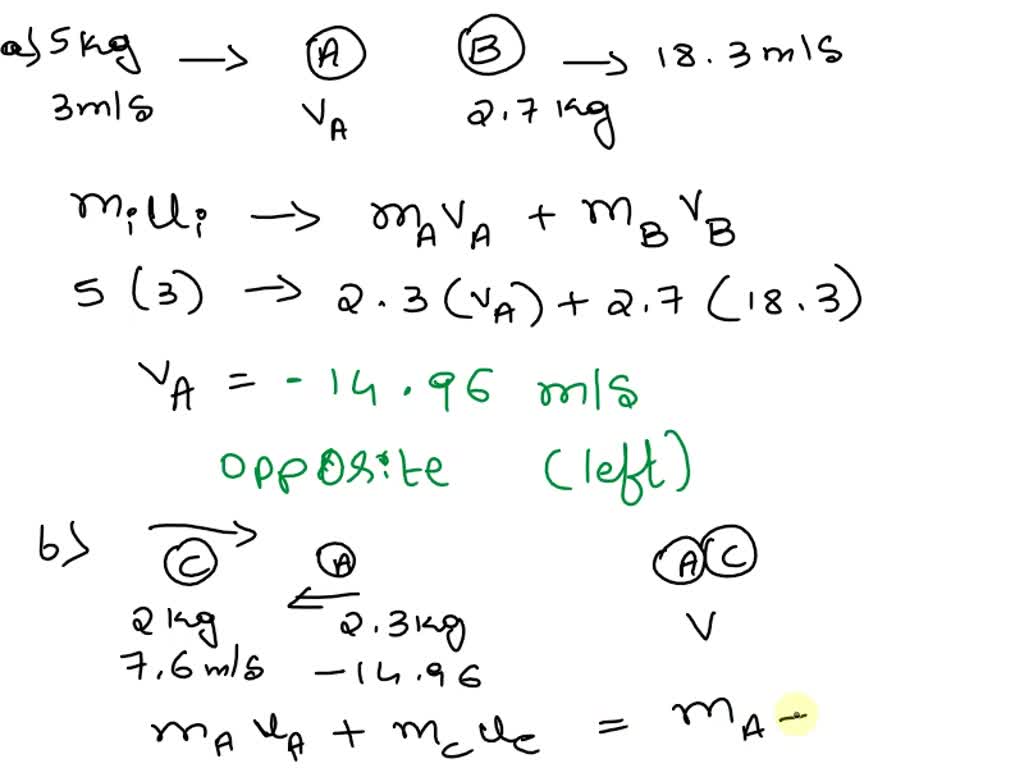 a) 5 kg → A B → 18.3 m/s
3 m/s vA 2.7 kg
miui → mAvA + mBvB
5 (3) → 2.3 (vA) + 2.7 (18.3)
vA = - 14.96 m/s
opposite (left)
b) → C A AC
2 kg ← 2.3 kg v
7.6 m/s -14.96
mAuA + mcuc = mA -